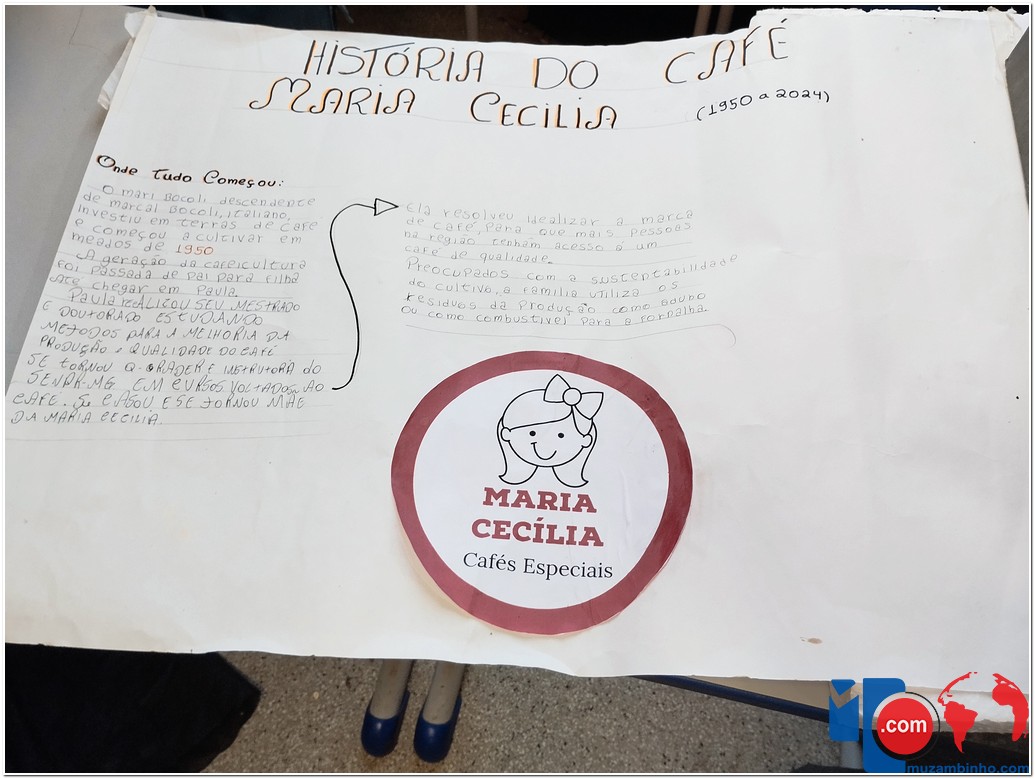 HISTÓRIA DO CAFÉ
MARIA CECILIA (1950 a 2024)
Onde Tudo Começou:
O mari Bocoli descendente
de marcal Bocoli, italiano,
investiu em terras de café
e começou a cultivar em
meados de 1950
A geração da cafeicultura
foi passada de pai para filha
até chegar em Paula.
Paula REALIZOU SEU MESTRADO
E DOUTORADO ESTUDANDO
METODOS PARA A MELHORIA DA
PRODUÇÃO e QUALIDADE DO CAFÉ
SE TORNOU Q-GRADER E INSTRUTORA do
SENAR-MG EM CURSOS VOLTADOS AO
CAFE. Se CASOU E SE TORNOU MÃE
DA MARIA CECILIA.
Ela resolveu idealizar a marca
de café, para que mais pessoas
na região tenham acesso á um
café de qualidade.
Preocupados com a sustentabilidade
do cultivo, a família utiliza os
residuos da produção como adubo
ou como combustivel para a fornalha.
MARIA
CECÍLIA
Cafés Especiais
.com
muzambinho.com